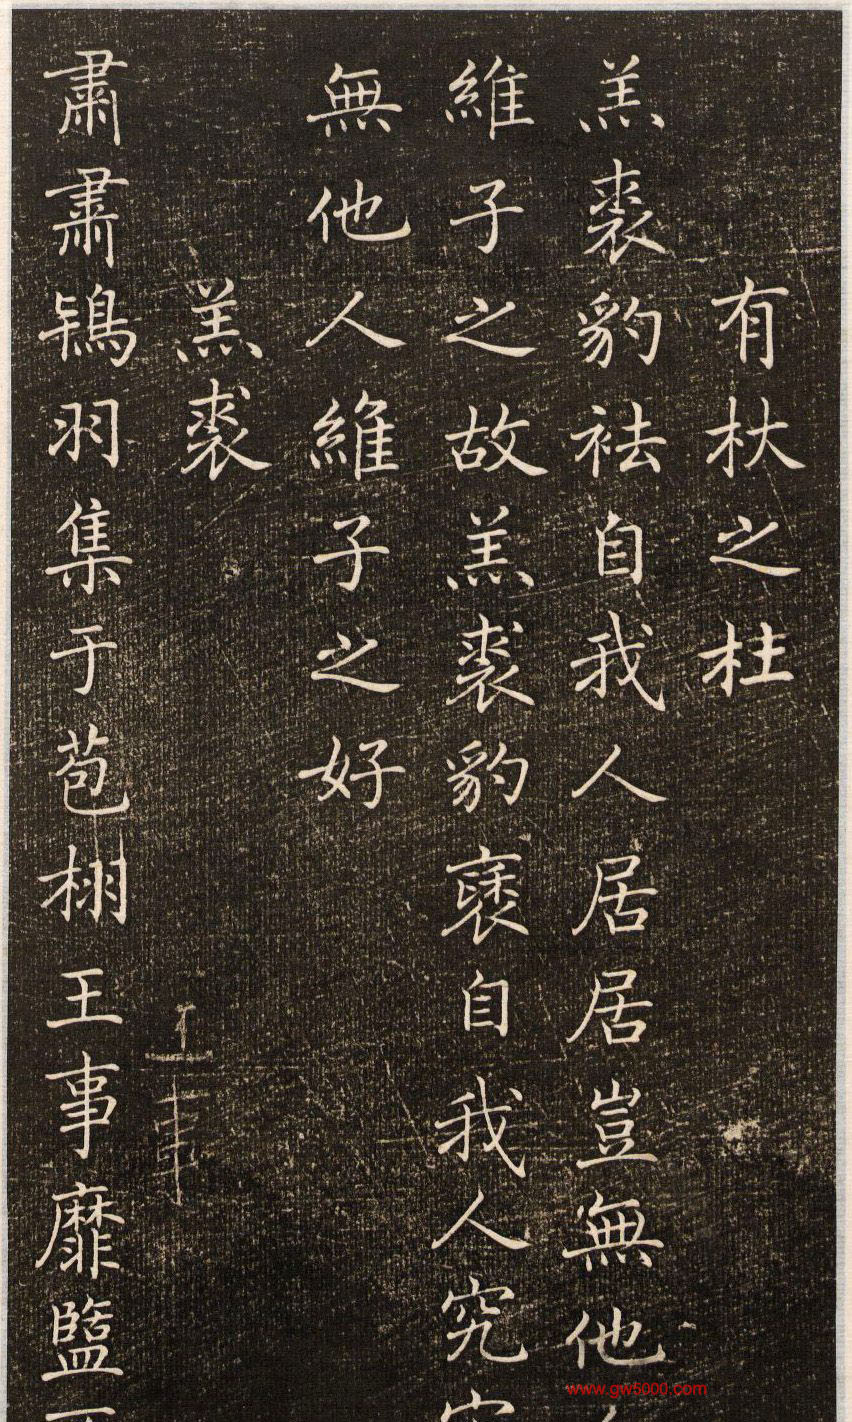 有杕之杜
羔裘豹袪自我人居居豈無他
維子之故羔裘豹褎自我人究
無他人維子之好
羔裘
肅肅鴇羽集于苞栩王事靡盬
www.gw5000.com